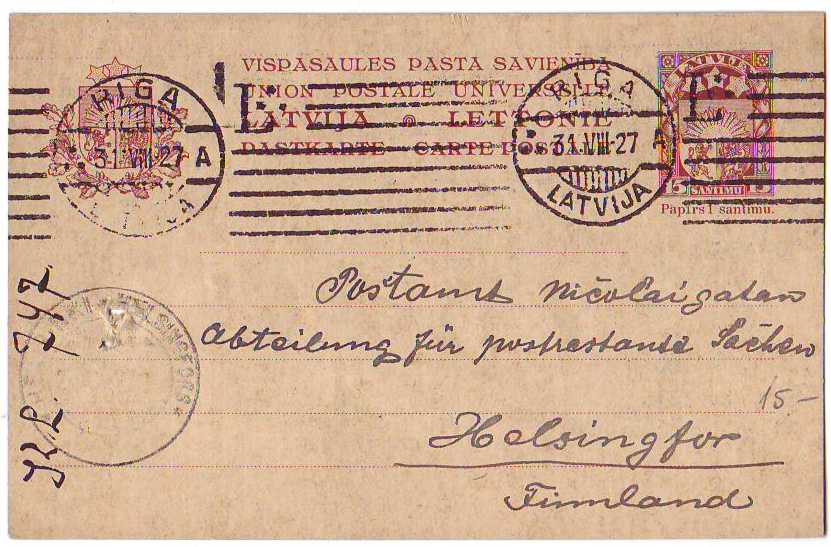 VISPASAULES PASTA SAVIENĪBA
UNION POSTALE UNIVERSELLE
LATVIJA LETTONIE
PASTKARTE CARTE POSTALE
RIGA
31.VIII.27 A
LATVIJA
RIGA
31.VIII.27 A
LATVIJA
LATVIJA
15 SANTIMU 15
Papīrs 1 santīmu.
Postamt Nicolaigatan
Abteilung für postrestante Sachen
15-
Helsingfor
Finnland
747
HELSINGFORS